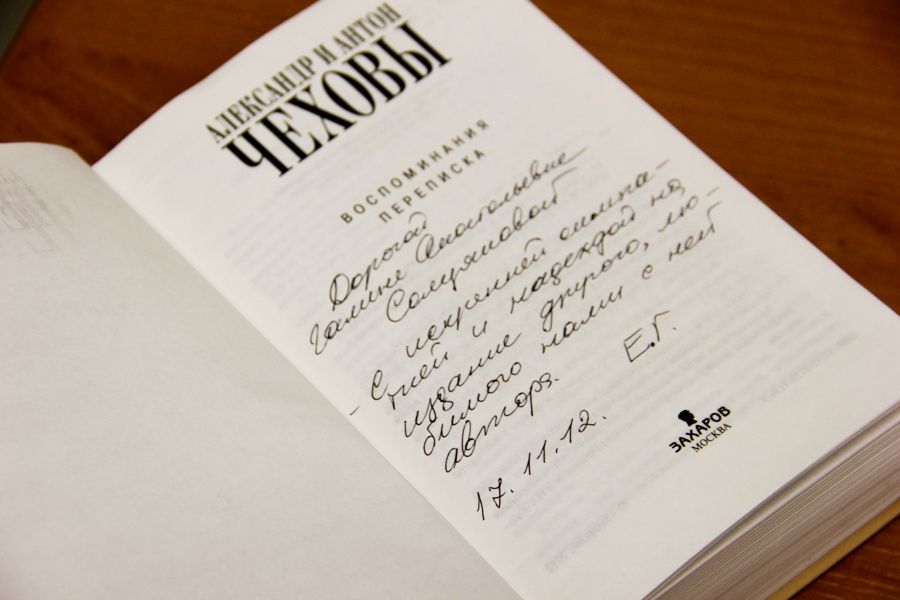 АЛЕКСАНДР И АНТОН
ЧЕХОВЫ
ВОСПОМИНАНИЯ
ПЕРЕПИСКА
Дорогой
Галине Анатольевне
— с искренней симпа-
тией и надеждой на
издание другого, лю-
бимого нами с ней
автора.
Е.Г.
17.11.12.
ЗАХАРОВ
МОСКВА